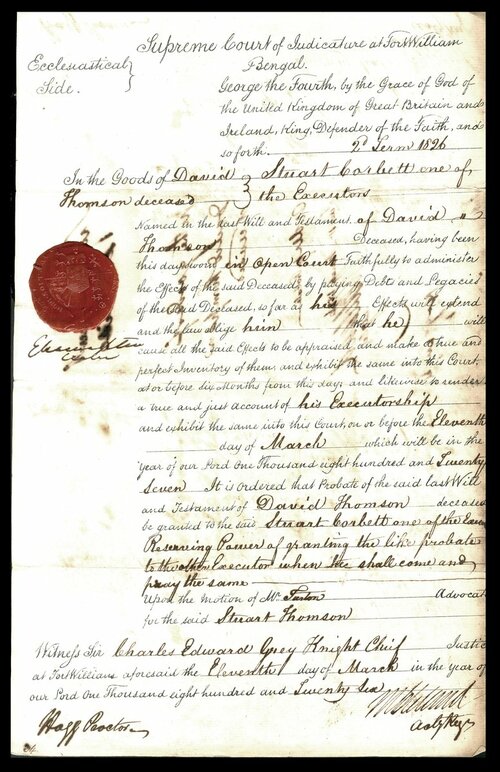 Supreme Court of Judicature at Fort William
Bengal.
Ecclesiastical
Side.
George the Fourth, by the Grace of God of
the United Kingdom of Great Britain and
Ireland, King, Defender of the Faith, and
so forth. 2d Term 1826
In the Goods of David
Thomson deceased
Stuart Corbett one of
the Executors
Named in the last Will and Testament of David
Thomson Deceased, having been
this day sworn in open Court Faithfully to administer
the Effects of the said Deceased, by paying Debts and Legacies
of the said Deceased, so far as his Effects will extend
and the law oblige him that he will
cause all the said Effects to be appraised and make a true and
perfect Inventory of them, and exhibit the same into this Court
at or before six Months from this day; and likewise to render
a true and just account of his Executorship
and exhibit the same into this Court, on or before the Eleventh
day of March which will be in the
year of our Lord One Thousand eight hundred and Twenty
Seven It is Ordered that Probate of the said last Will
and Testament of David Thomson deceased
be granted to the said Stuart Corbett one of the
Reserving Power of granting the like probate
to the other Executor when he shall come and
pray the same
Upon the Motion of Mr. Turton Advocate
for the said Stuart Thomson
Witness Sir Charles Edward Grey Knight Chief Justice
at Fort William aforesaid the Eleventh day of March in the year of
our Lord One Thousand eight hundred and Twenty Six
Hogg Proctor